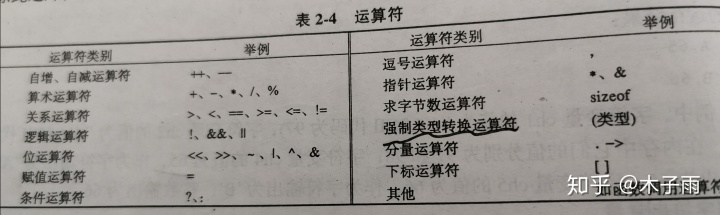 表 2-4 运算符
运算符类别 举例
自增、自减运算符 ++、—
算术运算符 +、-、*、/、%
关系运算符 >、<、==、>=、<=、!=
逻辑运算符 !、&&、||
位运算符 <<、>>、~、|、^、&
赋值运算符 =
条件运算符 ?、:
运算符类别 举例
逗号运算符 ,
指针运算符 *、&
求字节数运算符 sizeof
强制类型转换运算符 (类型)
分量运算符 .、->
下标运算符 [ ]
其他
知乎 @木子雨